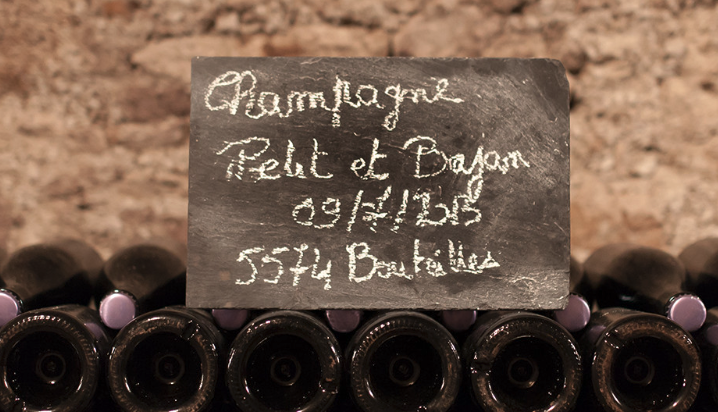 Champagne
Petit et Bajan
09/7/2013
5574 Bouteilles